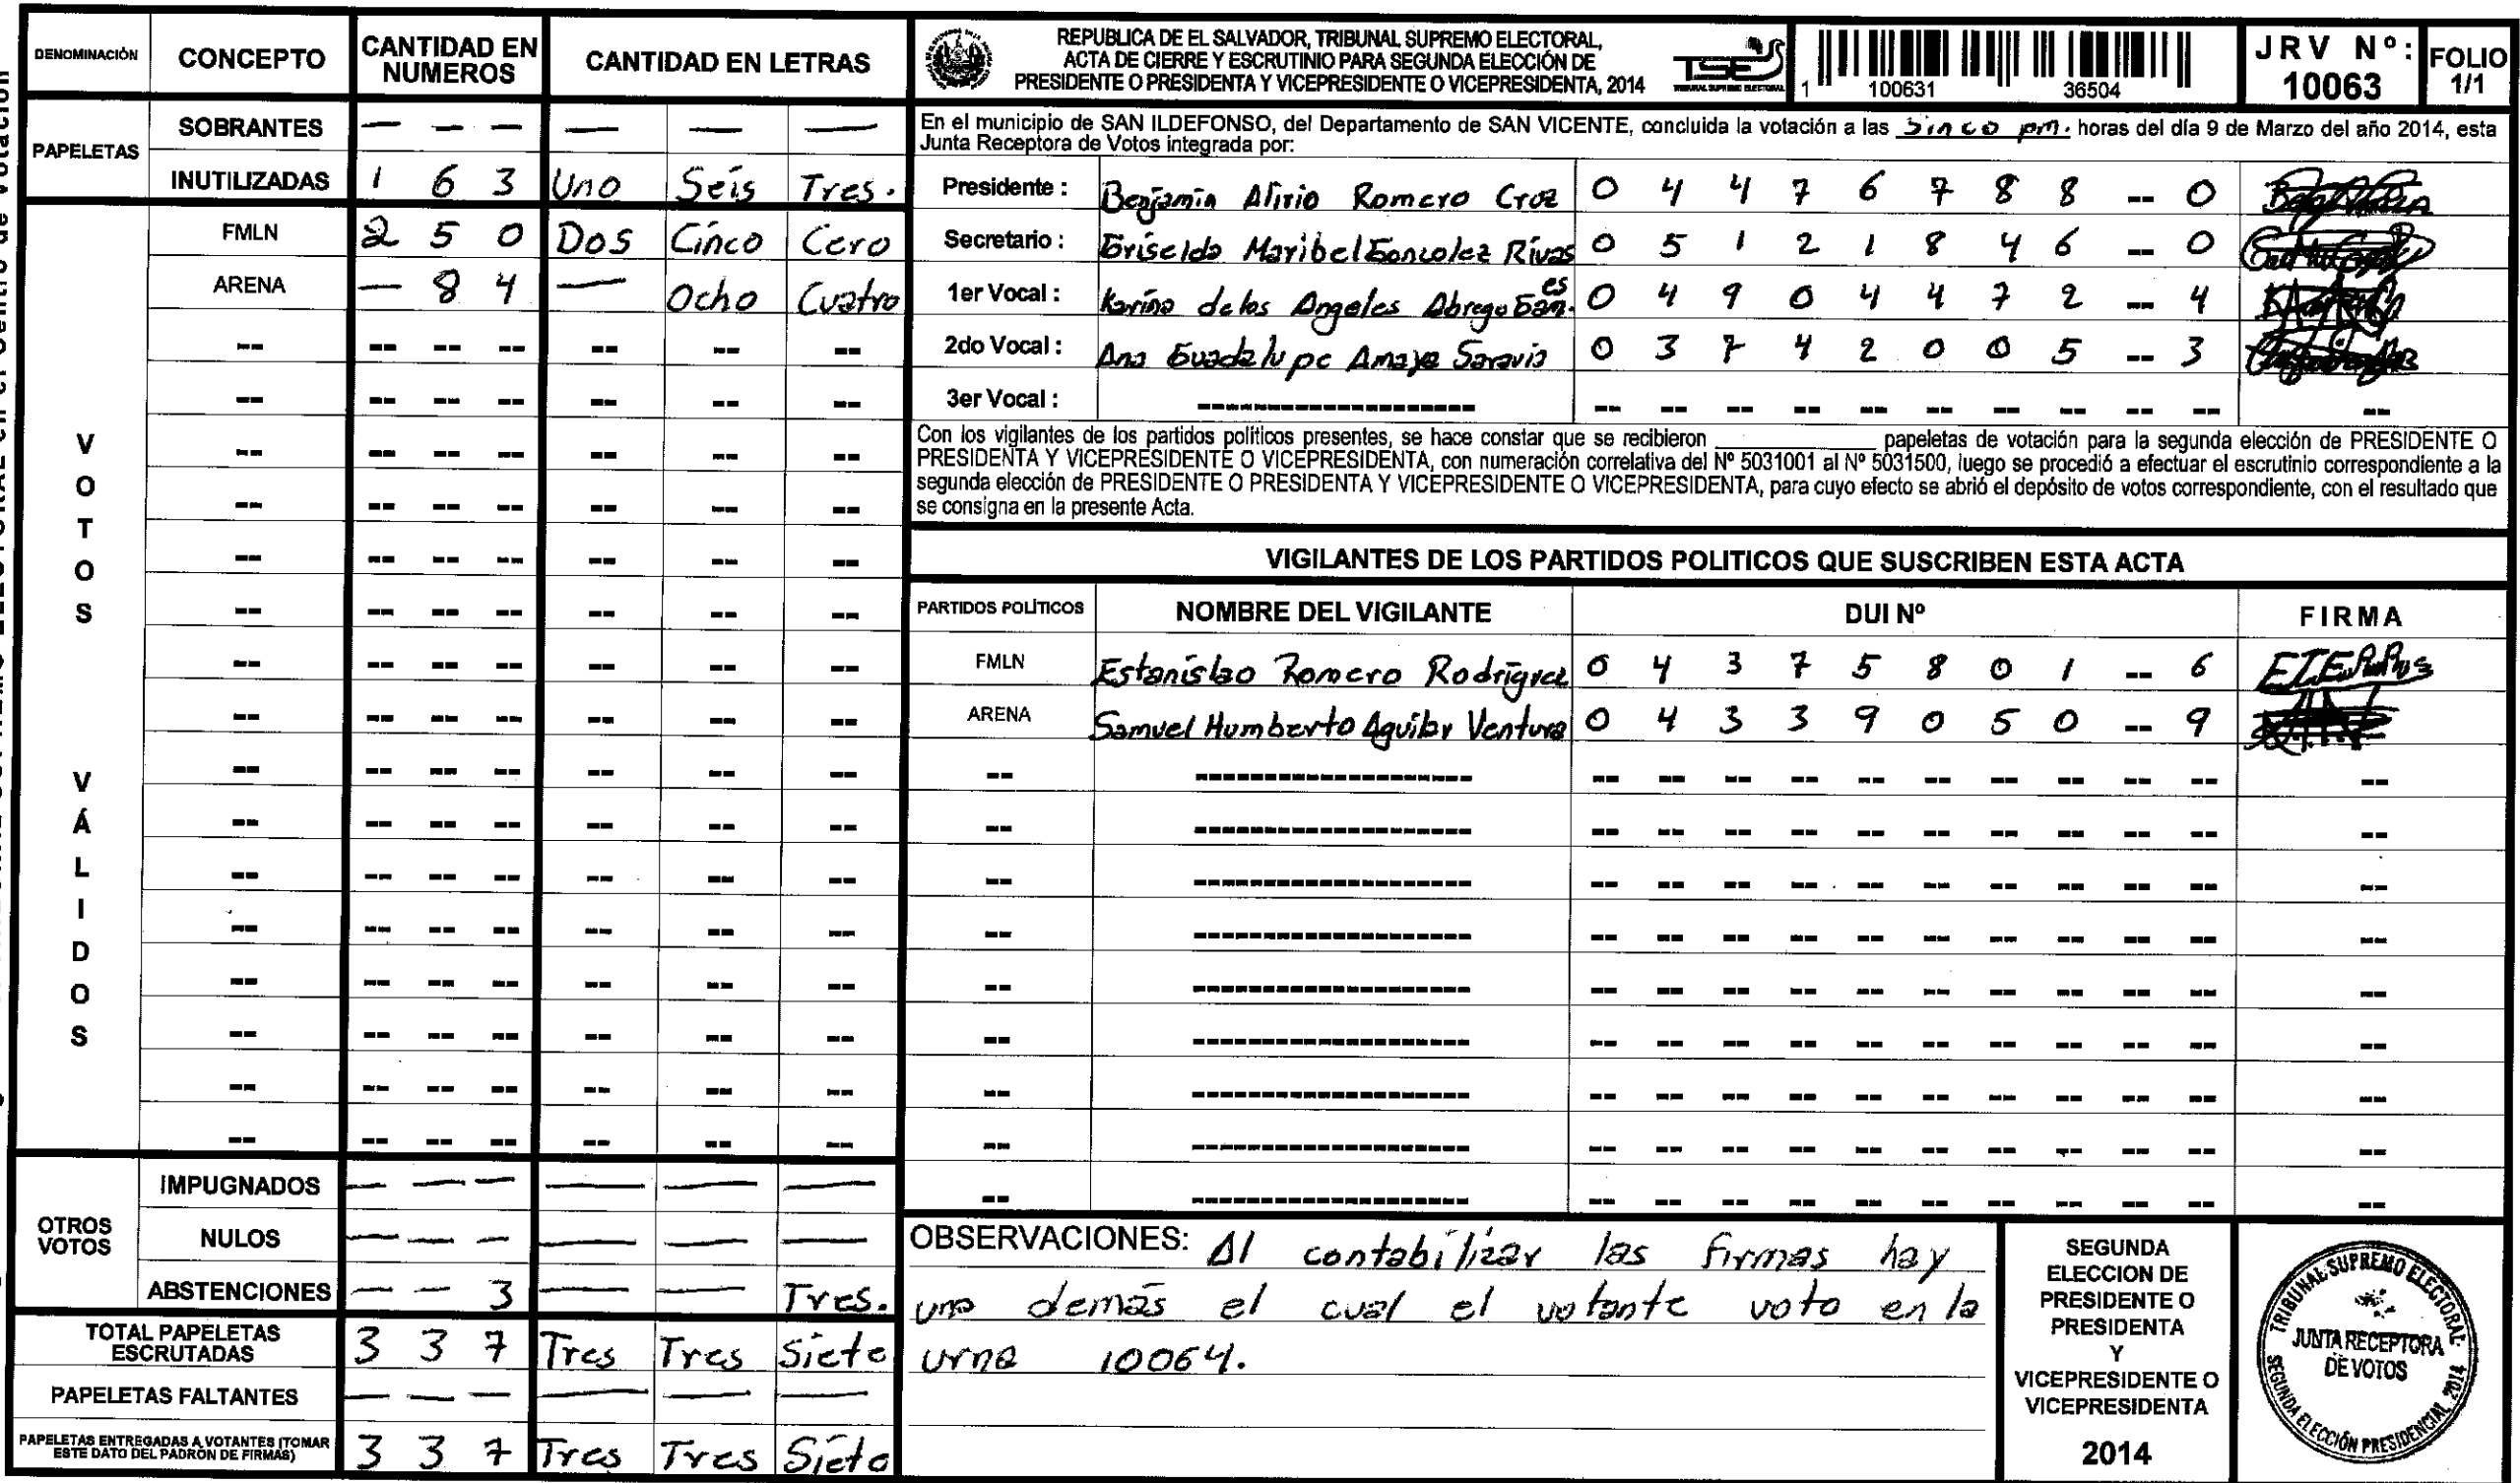 DENOMINACIÓN CONCEPTO CANTIDAD EN NUMEROS CANTIDAD EN LETRAS
PAPELETAS
SOBRANTES — — — — — —
INUTILIZADAS 1 6 3 Uno Seis Tres.
VOTOS VÁLIDOS
FMLN 2 5 0 Dos Cinco Cero
ARENA — 8 4 — Ocho Cuatro
OTROS VOTOS
IMPUGNADOS — — — — — —
NULOS — — — — — —
ABSTENCIONES — — 3 — — Tres.
TOTAL PAPELETAS ESCRUTADAS 3 3 7 Tres Tres Siete
PAPELETAS FALTANTES — — — — — —
PAPELETAS ENTREGADAS A VOTANTES (TOMAR ESTE DATO DEL PADRON DE FIRMAS) 3 3 7 Tres Tres Siete
REPUBLICA DE EL SALVADOR, TRIBUNAL SUPREMO ELECTORAL,
ACTA DE CIERRE Y ESCRUTINIO PARA SEGUNDA ELECCIÓN DE
PRESIDENTE O PRESIDENTA Y VICEPRESIDENTE O VICEPRESIDENTA, 2014
TSE
TRIBUNAL SUPREMO ELECTORAL
1 100631 36504
JRV Nº: 10063
FOLIO 1/1
En el municipio de SAN ILDEFONSO, del Departamento de SAN VICENTE, concluida la votación a las Sinco pm. horas del día 9 de Marzo del año 2014, esta
Junta Receptora de Votos integrada por:
Presidente : Benjamin Alirio Romero Cruz 0 4 4 7 6 7 8 8 -- 0
Secretario : Griselda Maribel Gonzolez Rivas 0 5 1 2 1 8 4 6 -- 0
1er Vocal : Karina de los Angeles Abrego Gam.es 0 4 9 0 4 4 7 2 -- 4
2do Vocal : Ana Guadalupe Amaya Saravia 0 3 7 4 2 0 0 5 -- 3
3er Vocal :
Con los vigilantes de los partidos políticos presentes, se hace constar que se recibieron ________ papeletas de votación para la segunda elección de PRESIDENTE O
PRESIDENTA Y VICEPRESIDENTE O VICEPRESIDENTA, con numeración correlativa del Nº 5031001 al Nº 5031500, luego se procedió a efectuar el escrutinio correspondiente a la
segunda elección de PRESIDENTE O PRESIDENTA Y VICEPRESIDENTE O VICEPRESIDENTA, para cuyo efecto se abrió el depósito de votos correspondiente, con el resultado que
se consigna en la presente Acta.
VIGILANTES DE LOS PARTIDOS POLITICOS QUE SUSCRIBEN ESTA ACTA
PARTIDOS POLÍTICOS NOMBRE DEL VIGILANTE DUI Nº FIRMA
FMLN Estanislao Romero Rodriguez 0 4 3 7 5 8 0 1 -- 6
ARENA Samuel Humberto Aguilar Ventura 0 4 3 3 9 0 5 0 -- 9
OBSERVACIONES: Al contabilizar las firmas hay
una demás el cual el votante voto en la
urna 10064.
SEGUNDA
ELECCION DE
PRESIDENTE O
PRESIDENTA
Y
VICEPRESIDENTE O
VICEPRESIDENTA
2014
TRIBUNAL SUPREMO ELECTORAL
JUNTA RECEPTORA
DE VOTOS
SEGUNDA ELECCIÓN PRESIDENCIAL 2014